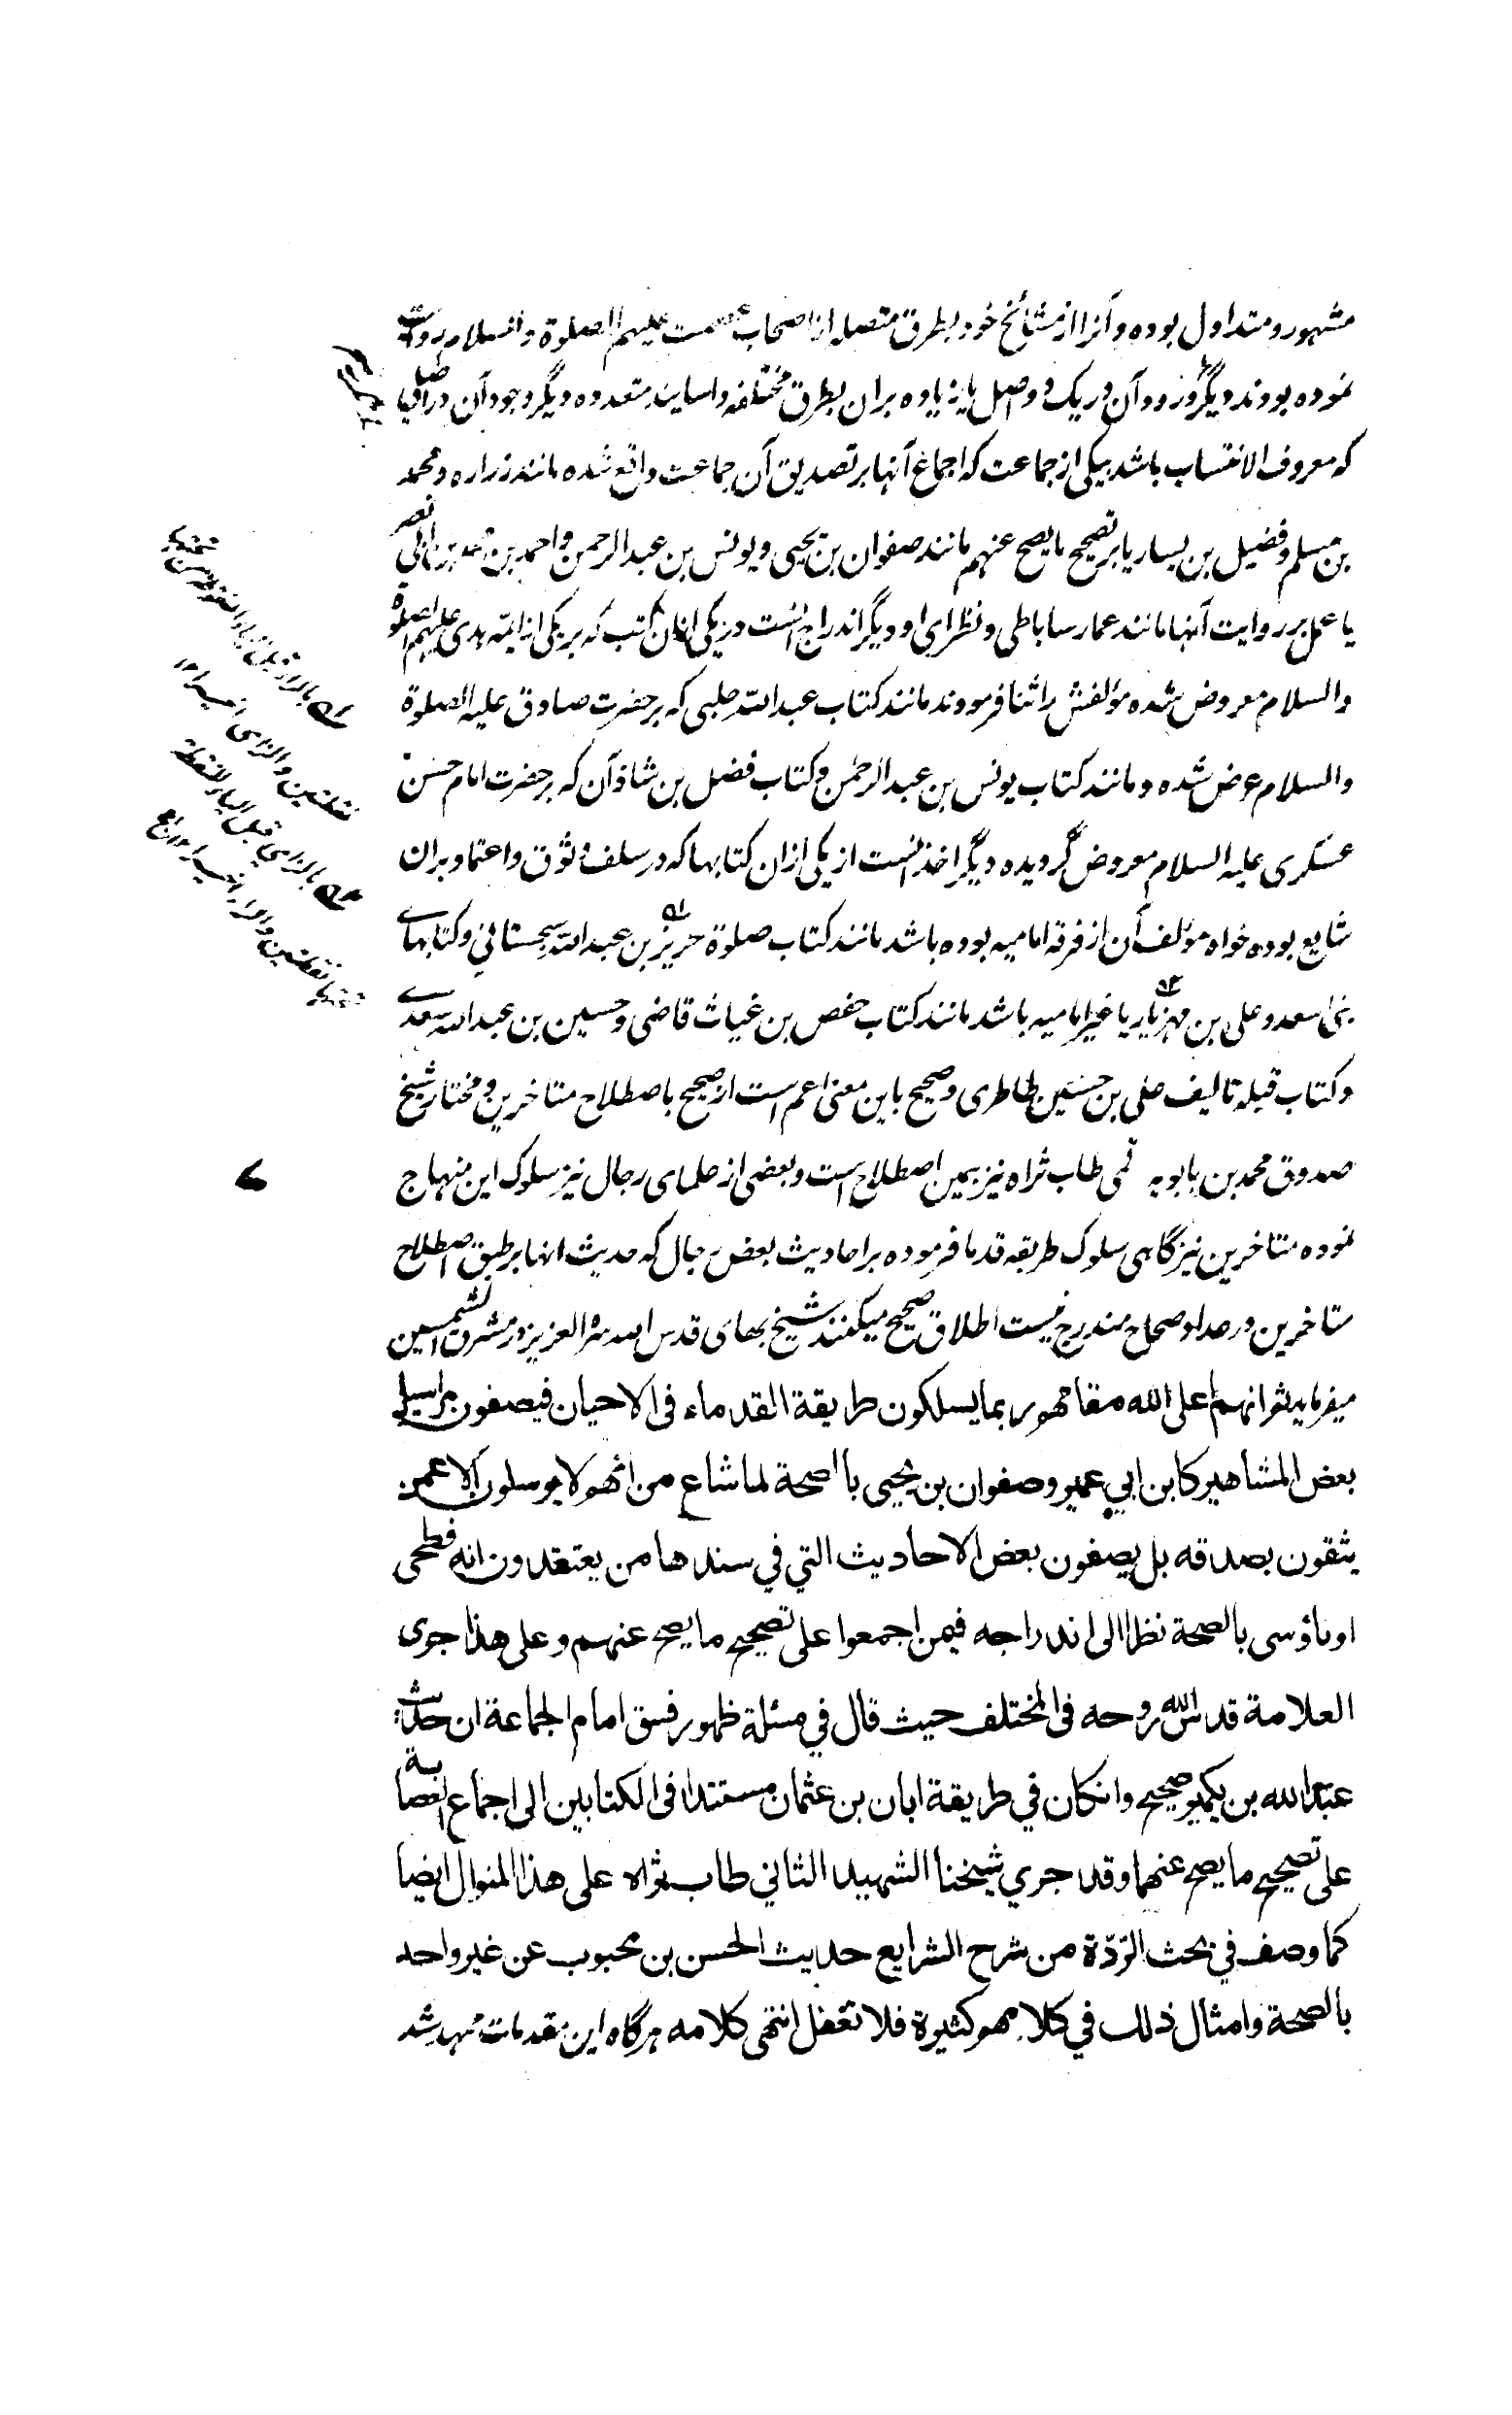 مشهور و متداول بوده و آنرا از مشائخ خود بطرق متصله از اصحاب عصمت علیهم الصلوة والسلام روایت
نموده بودند دیگر ورود آن در یک دو اصل یا زیاده بران بطرق مختلفه و اسانید متعدده دیگر وجود آن در اصلی
که معروف الانتساب باشد بیکی از جماعت که اجماع آنها بر تصدیق آن جماعت واقع شده مانند زراره و محمد
بن مسلم و فضیل بن یسار یا بر تصحیح ما یصح عنهم مانند صفوان بن یحیی و یونس بن عبد الرحمن و احمد بن محمد بن ابی نصر
یا عمل بر روایت آنها مانند عمار ساباطی و نظرای او دیگر اندراج آنست در یکی ازان کتب که بر یکی از ائمه هدی علیهم الصلوة
والسلام معروض شده مؤلفش را ثنا فرمودند مانند کتاب عبد الله حلبی که بر حضرت صادق علیه الصلوة
والسلام عرض شده و مانند کتاب یونس بن عبد الرحمن و کتاب فضل بن شاذان که بر حضرت امام حسن
عسکری علیه السلام معروض گردیده دیگر اخذ آنست از یکی ازان کتابها که در سلف وثوق و اعتماد بران
شایع بوده خواه مؤلف آن از فرقه امامیه بوده باشد مانند کتاب صلوة حریز بن عبد الله سجستانی و کتابهاے
بنی سعد و علی بن مهزیار یا غیر امامیه باشد مانند کتاب حفص بن غیاث قاضی و حسین بن عبد الله سعدے
و کتاب قبله تالیف علی بن حسین طاطری و صحیح باین معنی اعم است از صحیح باصطلاح متاخرین و مختار شیخ
صدوق محمد بن بابویه قمی طاب ثراه نیز همین اصطلاح است و بعضی از علمای رجال نیز سلوک این منهاج
نموده متاخرین نیز گاهی سلوک طریقه قدما فرموده بر احادیث بعض رجال که حدیث انها بر طبق اصطلاح
متاخرین در عداد صحاح مندرج نیست اطلاق صحیح میکنند شیخ بهای قدس الله سره العزیز در مشرق الشمسین
میفرماید ثم انهم اعلی الله مقامهم ربما یسلکون طریقة القدماء فی الاحیان فیصفون مراسیل
بعض المشاهیر کابن ابی عمیر وصفوان بن یحیی بالصحة لما شاع من انهم لا یرسلون الا عمن
یثقون بصدقه بل یصفون بعض الاحادیث التی فی سندها من یعتقدون انه فطحی
او ناؤسی بالصحة نظرا الی اندراجه فیمن اجمعوا علی تصحیح ما یصح عنهم وعلی هذا جری
العلامة قدس الله روحه فی المختلف حیث قال فی مسئلة ظهور فسق امام الجماعة ان حدیث
عبد الله بن بکیر صحیح وانکان فی طریقة ابان بن عثمان مستندا فی الکتابین الی اجماع العصابة
علی تصحیح ما یصح عنهما وقد جری شیخنا الشهید الثانی طاب ثراه علی هذا المنوال ایضا
کما وصف فی بحث الرّدّة من شرح الشرایع حدیث الحسن بن محبوب عن غیر واحد
بالصحة وامثال ذلک فی کلامهم کثیرة فلا تغفل انتهی کلامه هرگاه این مقدمات ممهد شد